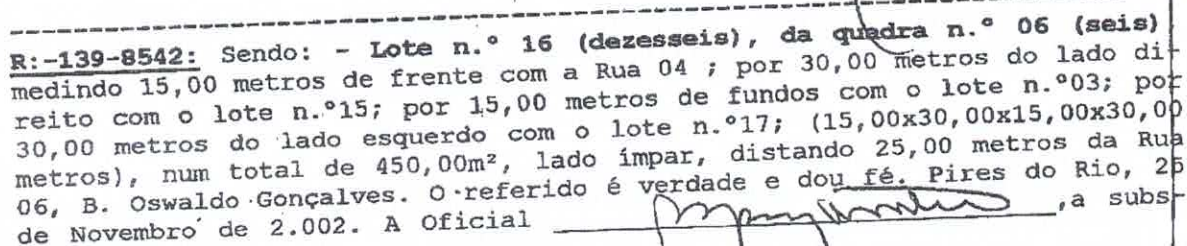 R:-139-8542: Sendo: - Lote n.º 16 (dezesseis), da quadra n.º 06 (seis)
medindo 15,00 metros de frente com a Rua 04 ; por 30,00 metros do lado di-
reito com o lote n.º15; por 15,00 metros de fundos com o lote n.º03; por
30,00 metros do lado esquerdo com o lote n.º17; (15,00x30,00x15,00x30,00
metros), num total de 450,00m², lado ímpar, distando 25,00 metros da Rua
06, B. Oswaldo Gonçalves. O referido é verdade e dou fé. Pires do Rio,
de Novembro de 2.002. A Oficial ,a subs-